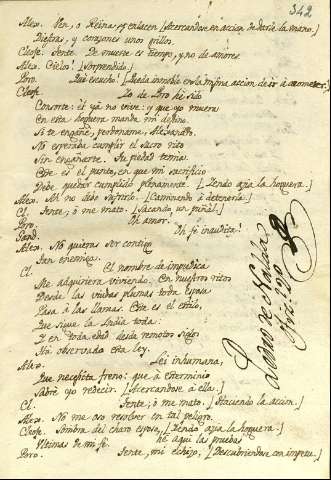 342
Alex. Ven, o Reina; q̃ enlacen [Acercandose en accion de darle la mano.]
Diestras, y corazones unos grillos.
Cleofe. Tente. De muerte es tiempo, y no de amores
Alex. Cielos! [Sorprendido.]
Poro. Qué escucho! [Queda inmoble en la misma accion de ir à acometer.]
Cleofe. Yo de Poro he sido
Consorte: él ya no vive: y que yo muera
En esta hoguera manda mi destino.
Si te engañé, perdoname, Alexandro.
No esperaba cumplir el sacro rito
Sin engañarte. Tu piedad temia.
Este es el punto, en que mi sacrificio
Debe quedar cumplido plenamente. [Yendo azia la hoguera.]
Alex. Ah no debo sufrirlo. [Caminando à detenerla.]
Cl. Tente, ò me mato. [Sacando un puñal.]
Poro. Oh amor!
Gand. Oh fe inaudita!
Alex. No quieras ser contigo
Tan enemiga.
Cl. El nombre de impudica
Me adquiriera viviendo. En nuestros ritos
Desde las viudas plumas toda esposa
Pasa à las llamas. Este es el estilo,
Que sigue la India toda:
Y en toda edad desde remotos siglos
Se ha observado esta ley.
Alex. Lei inhumana,
Que necesita freno: que à exterminio
Sabre yo redecir. [Acercandose à ella.]
Cl. Tente, ò me mato. [Haciendo la accion.]
Alex. No me oso resolver en tal peligro.
Cleofe. Sombra del charo esposo, [Yendo azia la hoguera.]
he aqui las pruebas
Ultimas de mi fe.
Poro. Tente, mi echizo, [Descubriendose con impetu.]
Pedro de Nalda